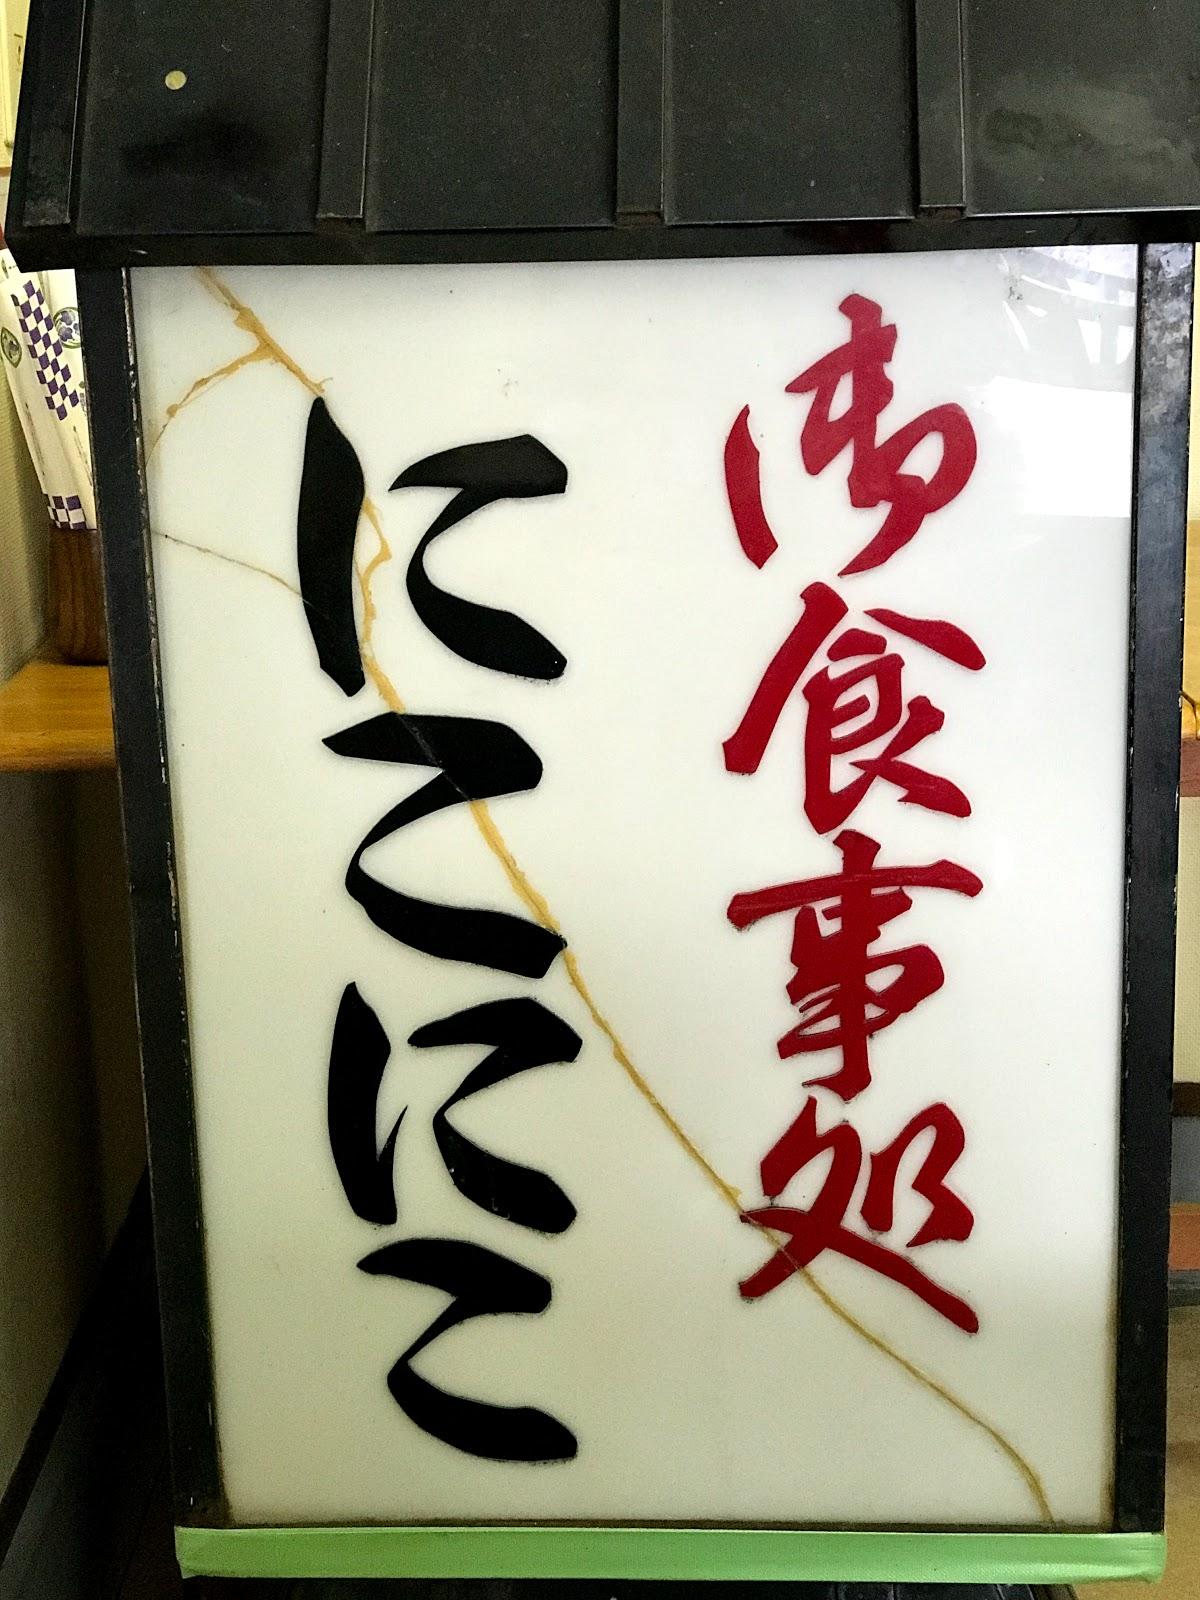 御食事処
にこにこ